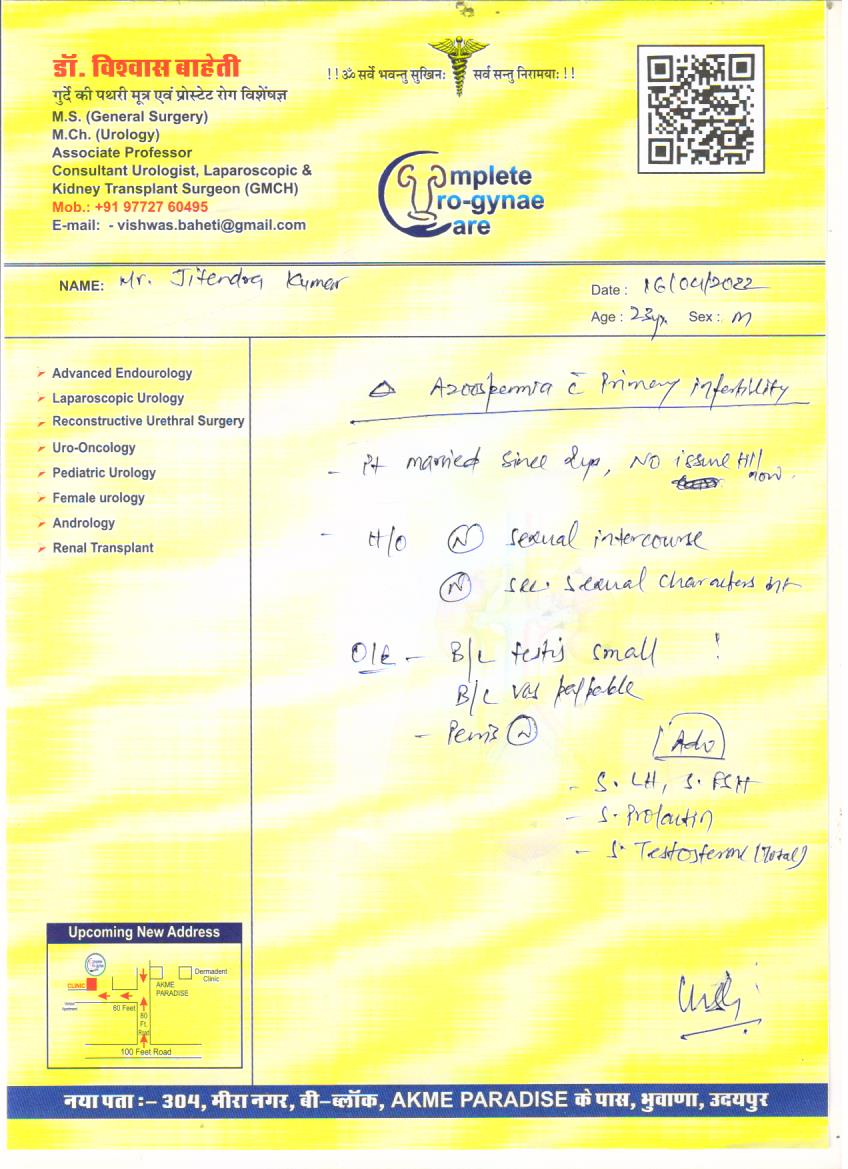 डॉ. विश्वास बाहेती
गुर्दे की पथरी मूत्र एवं प्रोस्टेट रोग विशेषज्ञ
M.S. (General Surgery)
M.Ch. (Urology)
Associate Professor
Consultant Urologist, Laparoscopic &
Kidney Transplant Surgeon (GMCH)
Mob.: +91 97727 60495
E-mail: - vishwas.baheti@gmail.com
!! ॐ सर्वे भवन्तु सुखिनः सर्व सन्तु निरामयाः !!
Complete
Uro-gynae
Care
NAME: Mr. Jitendra Kumar
Date : 16/04/2022
Age : 23yr. Sex : M
Advanced Endourology
Laparoscopic Urology
Reconstructive Urethral Surgery
Uro-Oncology
Pediatric Urology
Female urology
Andrology
Renal Transplant
△ Azoospermia c̄ Primary infertility
- Pt married since, NO issue till now.
- H/O (N) sexual intercourse
(N) sec. sexual characters
O/E - B/L testis small !
B/L vas palpable
- Penis (N)
Adv
- S. LH, S. FSH
- S. Prolactin
- S. Testosterone (Total)
Upcoming New Address
CLINIC
AKME
PARADISE
Dermadent
Clinic
60 Feet
80
Ft.
Road
100 Feet Road
नया पता :- 304, मीरा नगर, बी-ब्लॉक, AKME PARADISE के पास, भुवाणा, उदयपुर